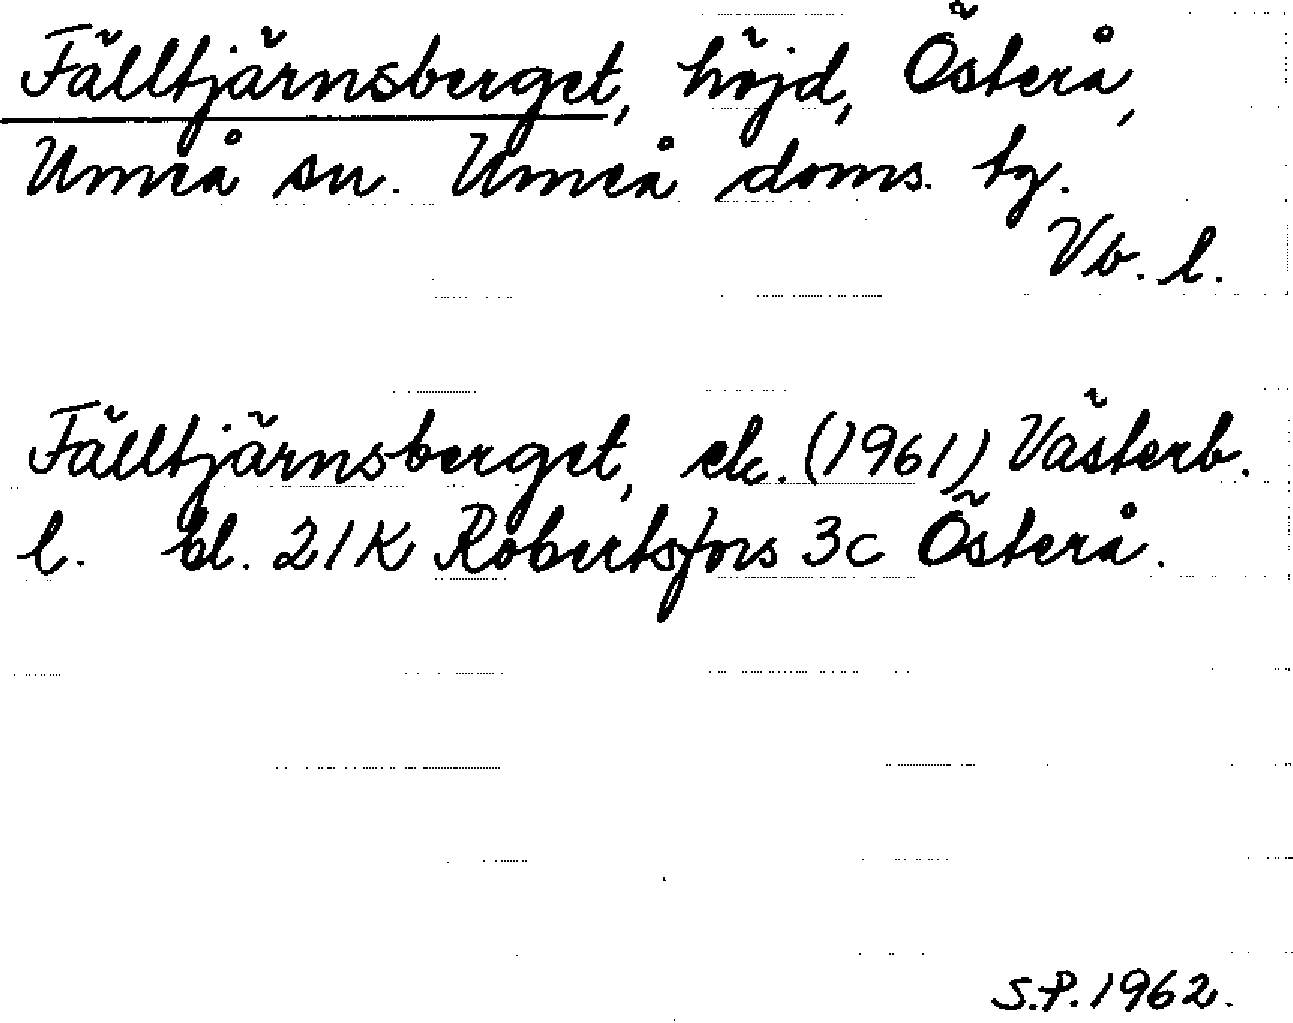 Fälltjärnsberget, höjd, Österå,
Umeå sn. Umeå doms. tg.
Vb. l.
Fälltjärnsberget, ek. (1961) Västerb.
l. bl. 21K Robertsfors 3c Österå.
S.P. 1962.